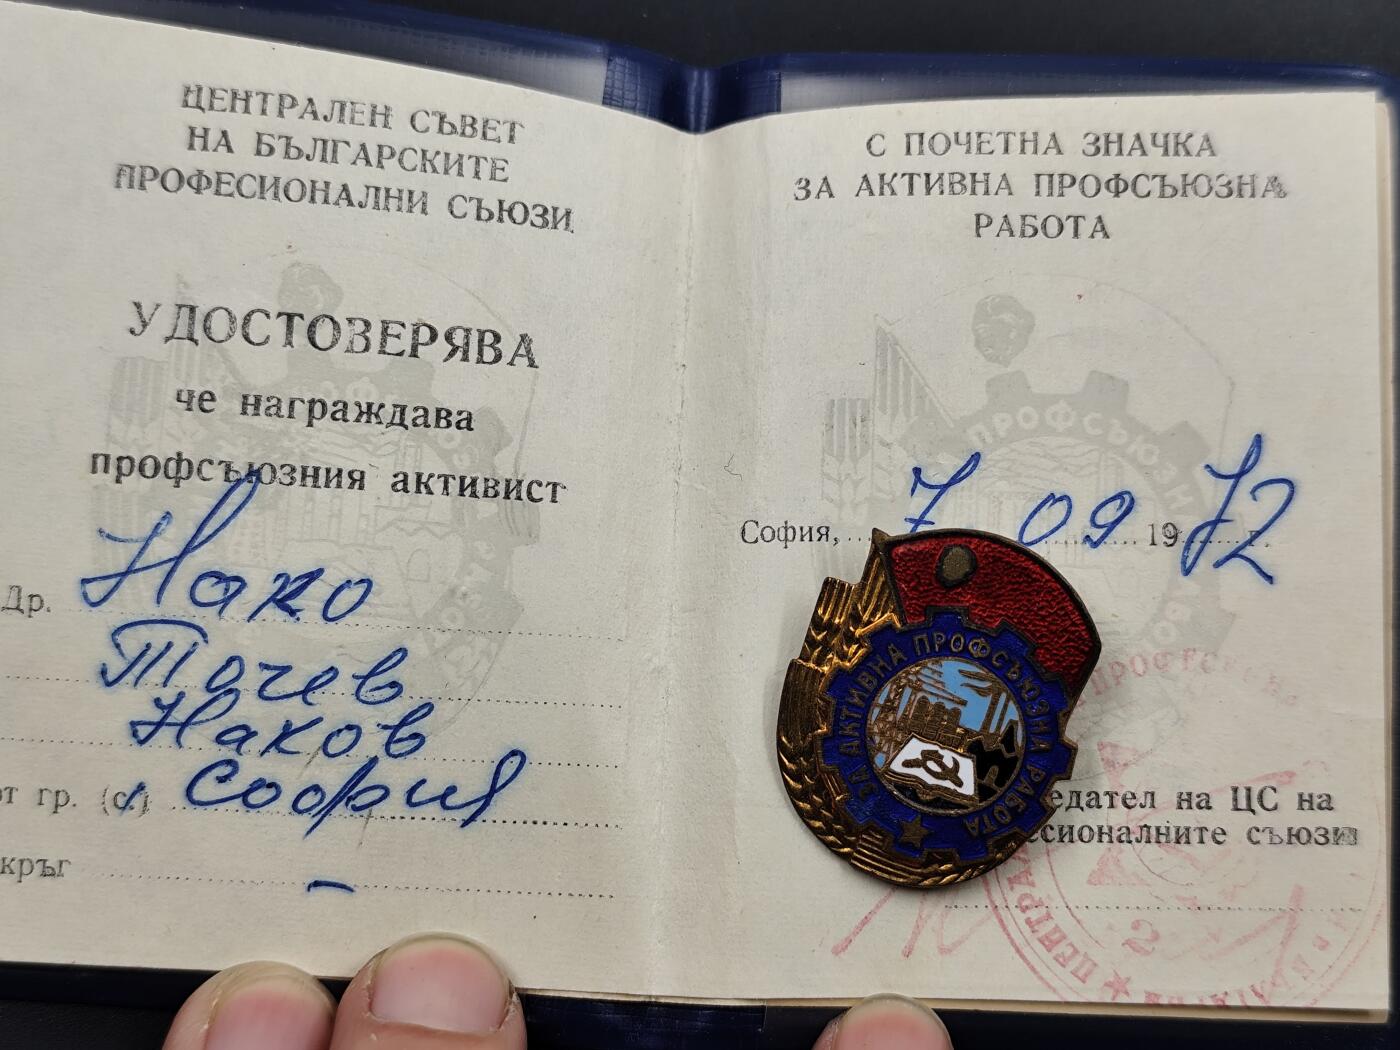 ЦЕНТРАЛЕН СЪВЕТ
НА БЪЛГАРСКИТЕ
ПРОФЕСИОНАЛНИ СЪЮЗИ
УДОСТОВЕРЯВА
че награждава
профсъюзния активист
Др. Нако
Точев
Наков
от гр. (с.) София
кръг –
С ПОЧЕТНА ЗНАЧКА
ЗА АКТИВНА ПРОФСЪЮЗНА
РАБОТА
София, 7 09 1972
ЗА АКТИВНА ПРОФСЪЮЗНА РАБОТА
едател на ЦС на
есионалните съюзи